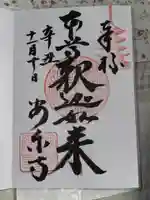 奉拝
本尊釈迦如来
辛丑
十一月十日
安楽寺